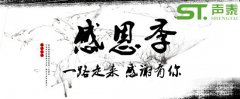 感恩季
一路走来 感谢有你
ST.声泰
SHENGTAI